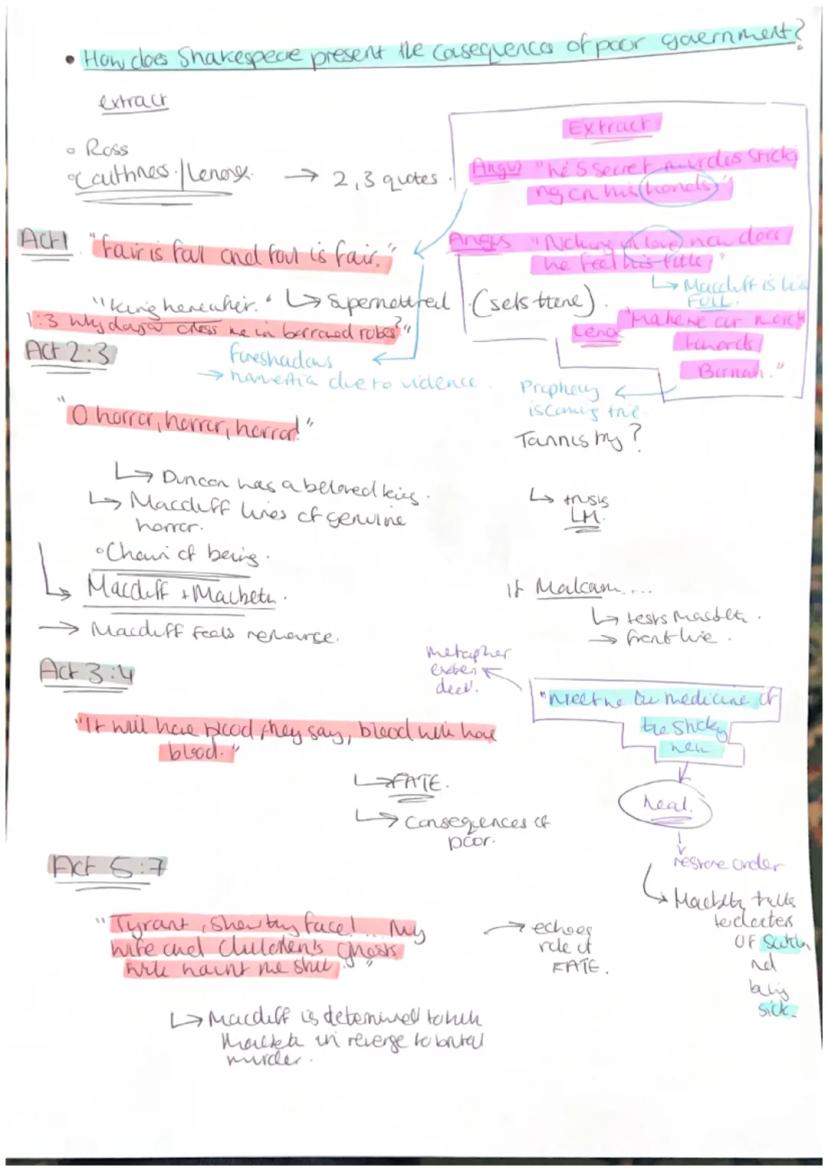 • How does Shakespeare present the consequences of poor government?
extract
◦ Ross
◦ Caithness / Lenox. → 2,3 quotes.
Extract
Angus "he's secret murders sticki
ng on his hands"
Angus "Nothing in love now does
he feel his title"
↳ Macduff is his
FULL.
Lenox "Make we our march
towards
Birnan."
Prophecy
is coming true.
Act 1 "fair is foul and foul is fair."
"king hereafter." ↳ Supernatural (sets tone).
1:3 why do you dress me in borrowed robes?"
foreshadows
→ hamartia due to violence.
Act 2:3
"O horror, horror, horror!"
↳ Duncan was a beloved king.
↳ Macduff lines of genuine
horror.
◦ Chain of being.
↳ Macduff + Macbeth.
→ Macduff feels remorse.
?
↳ trusts
LM.
If Malcom....
↳ tests Macbeth.
→ front lie.
Act 3:4
"It will have blood they say, blood will have
blood."
↳ FATE.
↳ Consequences of
poor.
metaphor
"Meet we the medicine of
the sickly
weal"
heal.
restore order
↳ Macbeth talks
to doctor
OF Scotland
being
sick.
Act 5:7
"Tyrant, show thy face!... My
wife and children's ghosts
will haunt me still."
→ echoes
role of
FATE.
↳ Macduff is determined to kill
Macbeth in revenge to brutal
murder.